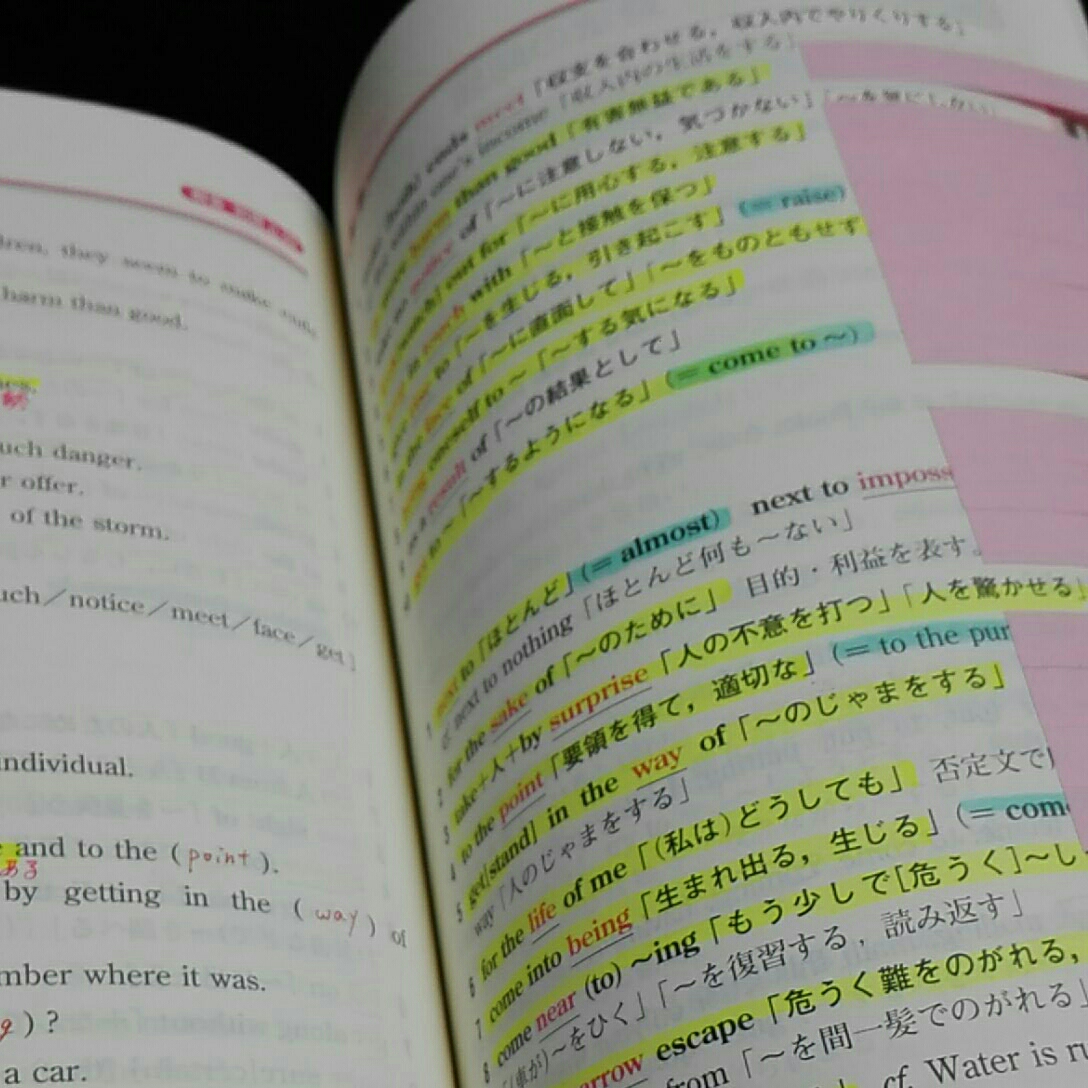 dren, they seem to make
harm than good.
uch danger.
r offer.
of the storm.
uch／notice／meet／face／get］
individual.
and to the ( point ).
ある
by getting in the ( way ) of
mber where it was.
) ?
a car.
ends meet 「収支を合わせる，収入内でやりくりする」
one's income 「収入内の生活をする」
harm than good「有害無益である」
of「〜に注意しない，気づかない」「〜を気にしない
out for「〜に用心する，注意する」
touch with「〜と接触を保つ」
to「〜を生じる，引き起こす」(＝raise)
face of「〜に直面して」「〜をものともせず
oneself to〜「〜する気になる」
result of「〜の結果として」
to〜「〜するようになる」(＝come to〜)
1 next to「ほとんど」(＝almost) next to imposs
cf. next to nothing「ほとんど何も〜ない」
2 for the sake of「〜のために」 目的・利益を表す。
3 take＋人＋by surprise「人の不意を打つ」「人を驚かせる」
4 to the point「要領を得て，適切な」(＝to the pur
5 get[stand] in the way of「〜のじゃまをする」
way「人のじゃまをする」
6 for the life of me「(私は)どうしても」 否定文で
7 come into being「生まれ出る，生じる」(＝com
8 come near (to) 〜ing「もう少しで[危うく]〜し
「(車が)〜をひく」「〜を復習する，読み返す」
arrow escape「危うく難をのがれる，
from「〜を間一髪でのがれる」
cf. Water is ru